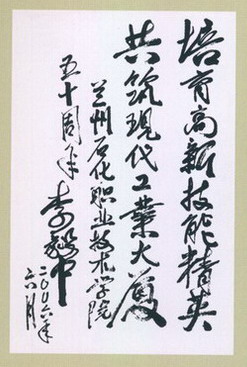 培育高新技能精英
共筑现代工業大厦
兰州石化职业技术学院
五十周年
李毅中
二〇〇六年
六月